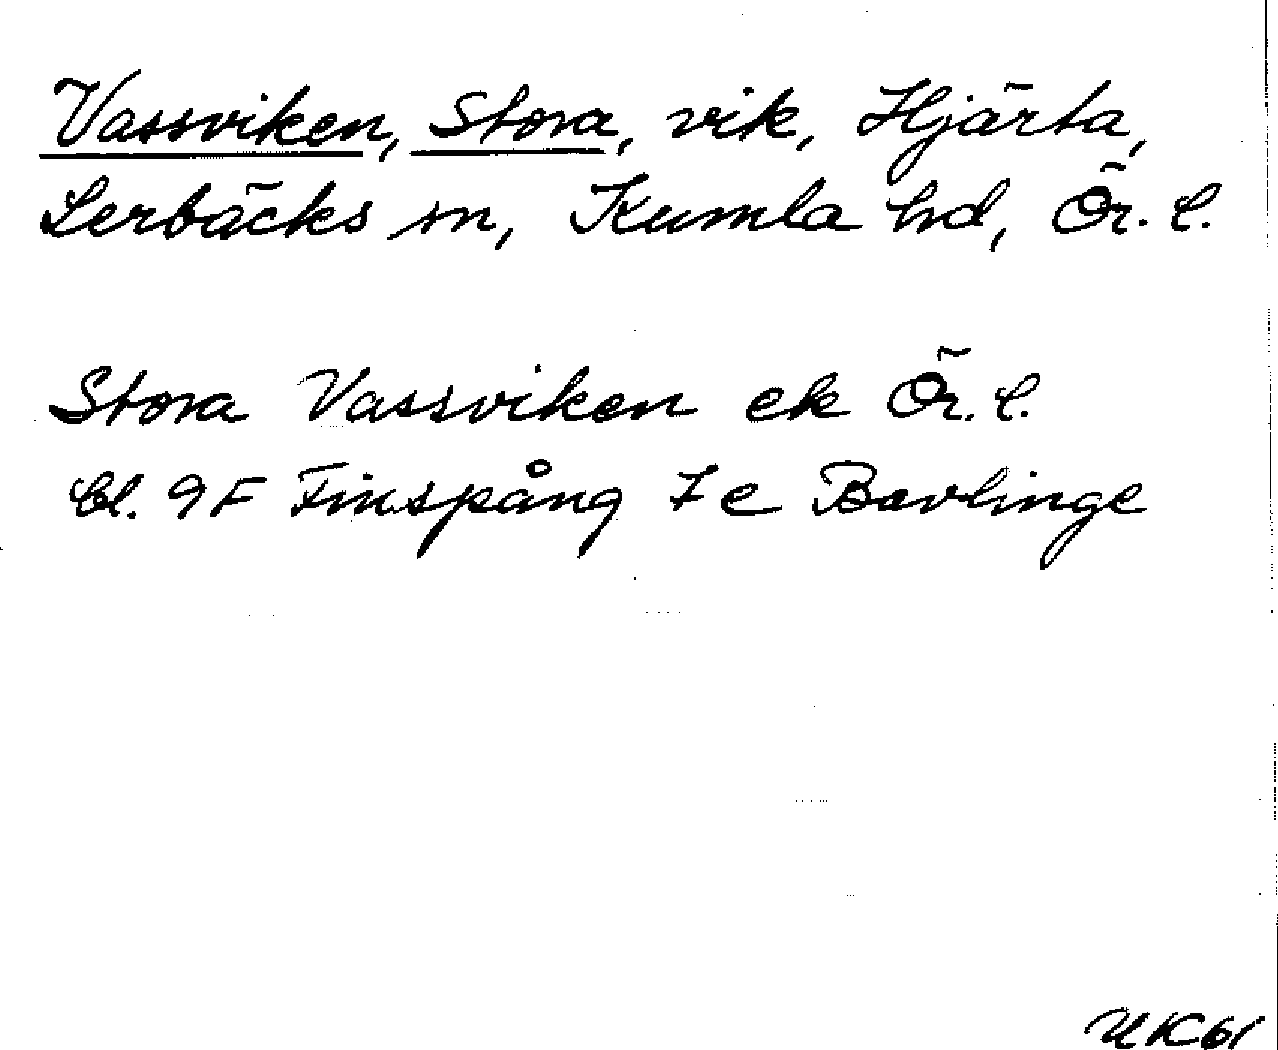 Vassviken, Stora, vik, Hjärta,
Lerbäcks sn, Kumla hd, Ör. l.
Stora Vassviken ek Ör. l.
bl. 9F Finspång 7e Bavlinge
UK61